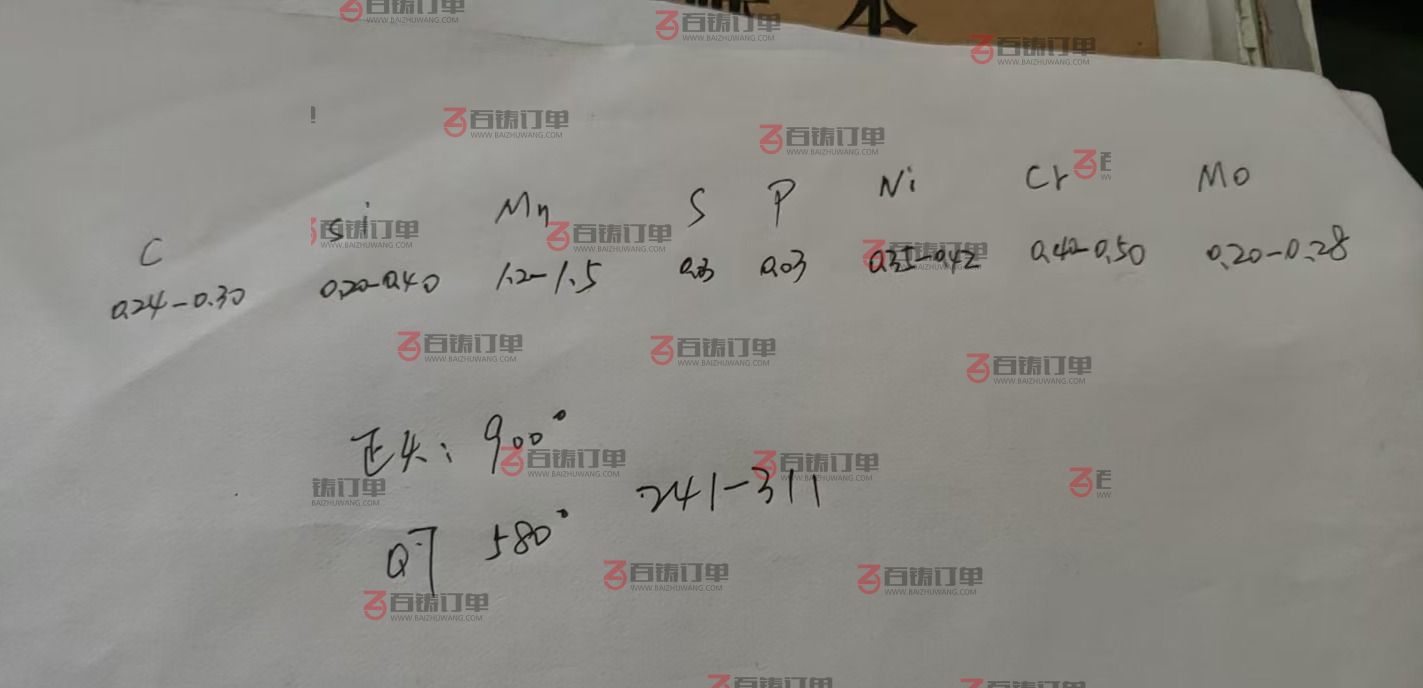 本
C Si Mn S P Ni Cr Mo
0.24-0.30 0.20-0.40 1.2-1.5 0.03 0.03 0.35-0.42 0.40-0.50 0.20-0.28
正火: 900°
241-311
580°
百铸订单
WWW.BAIZHUWANG.COM